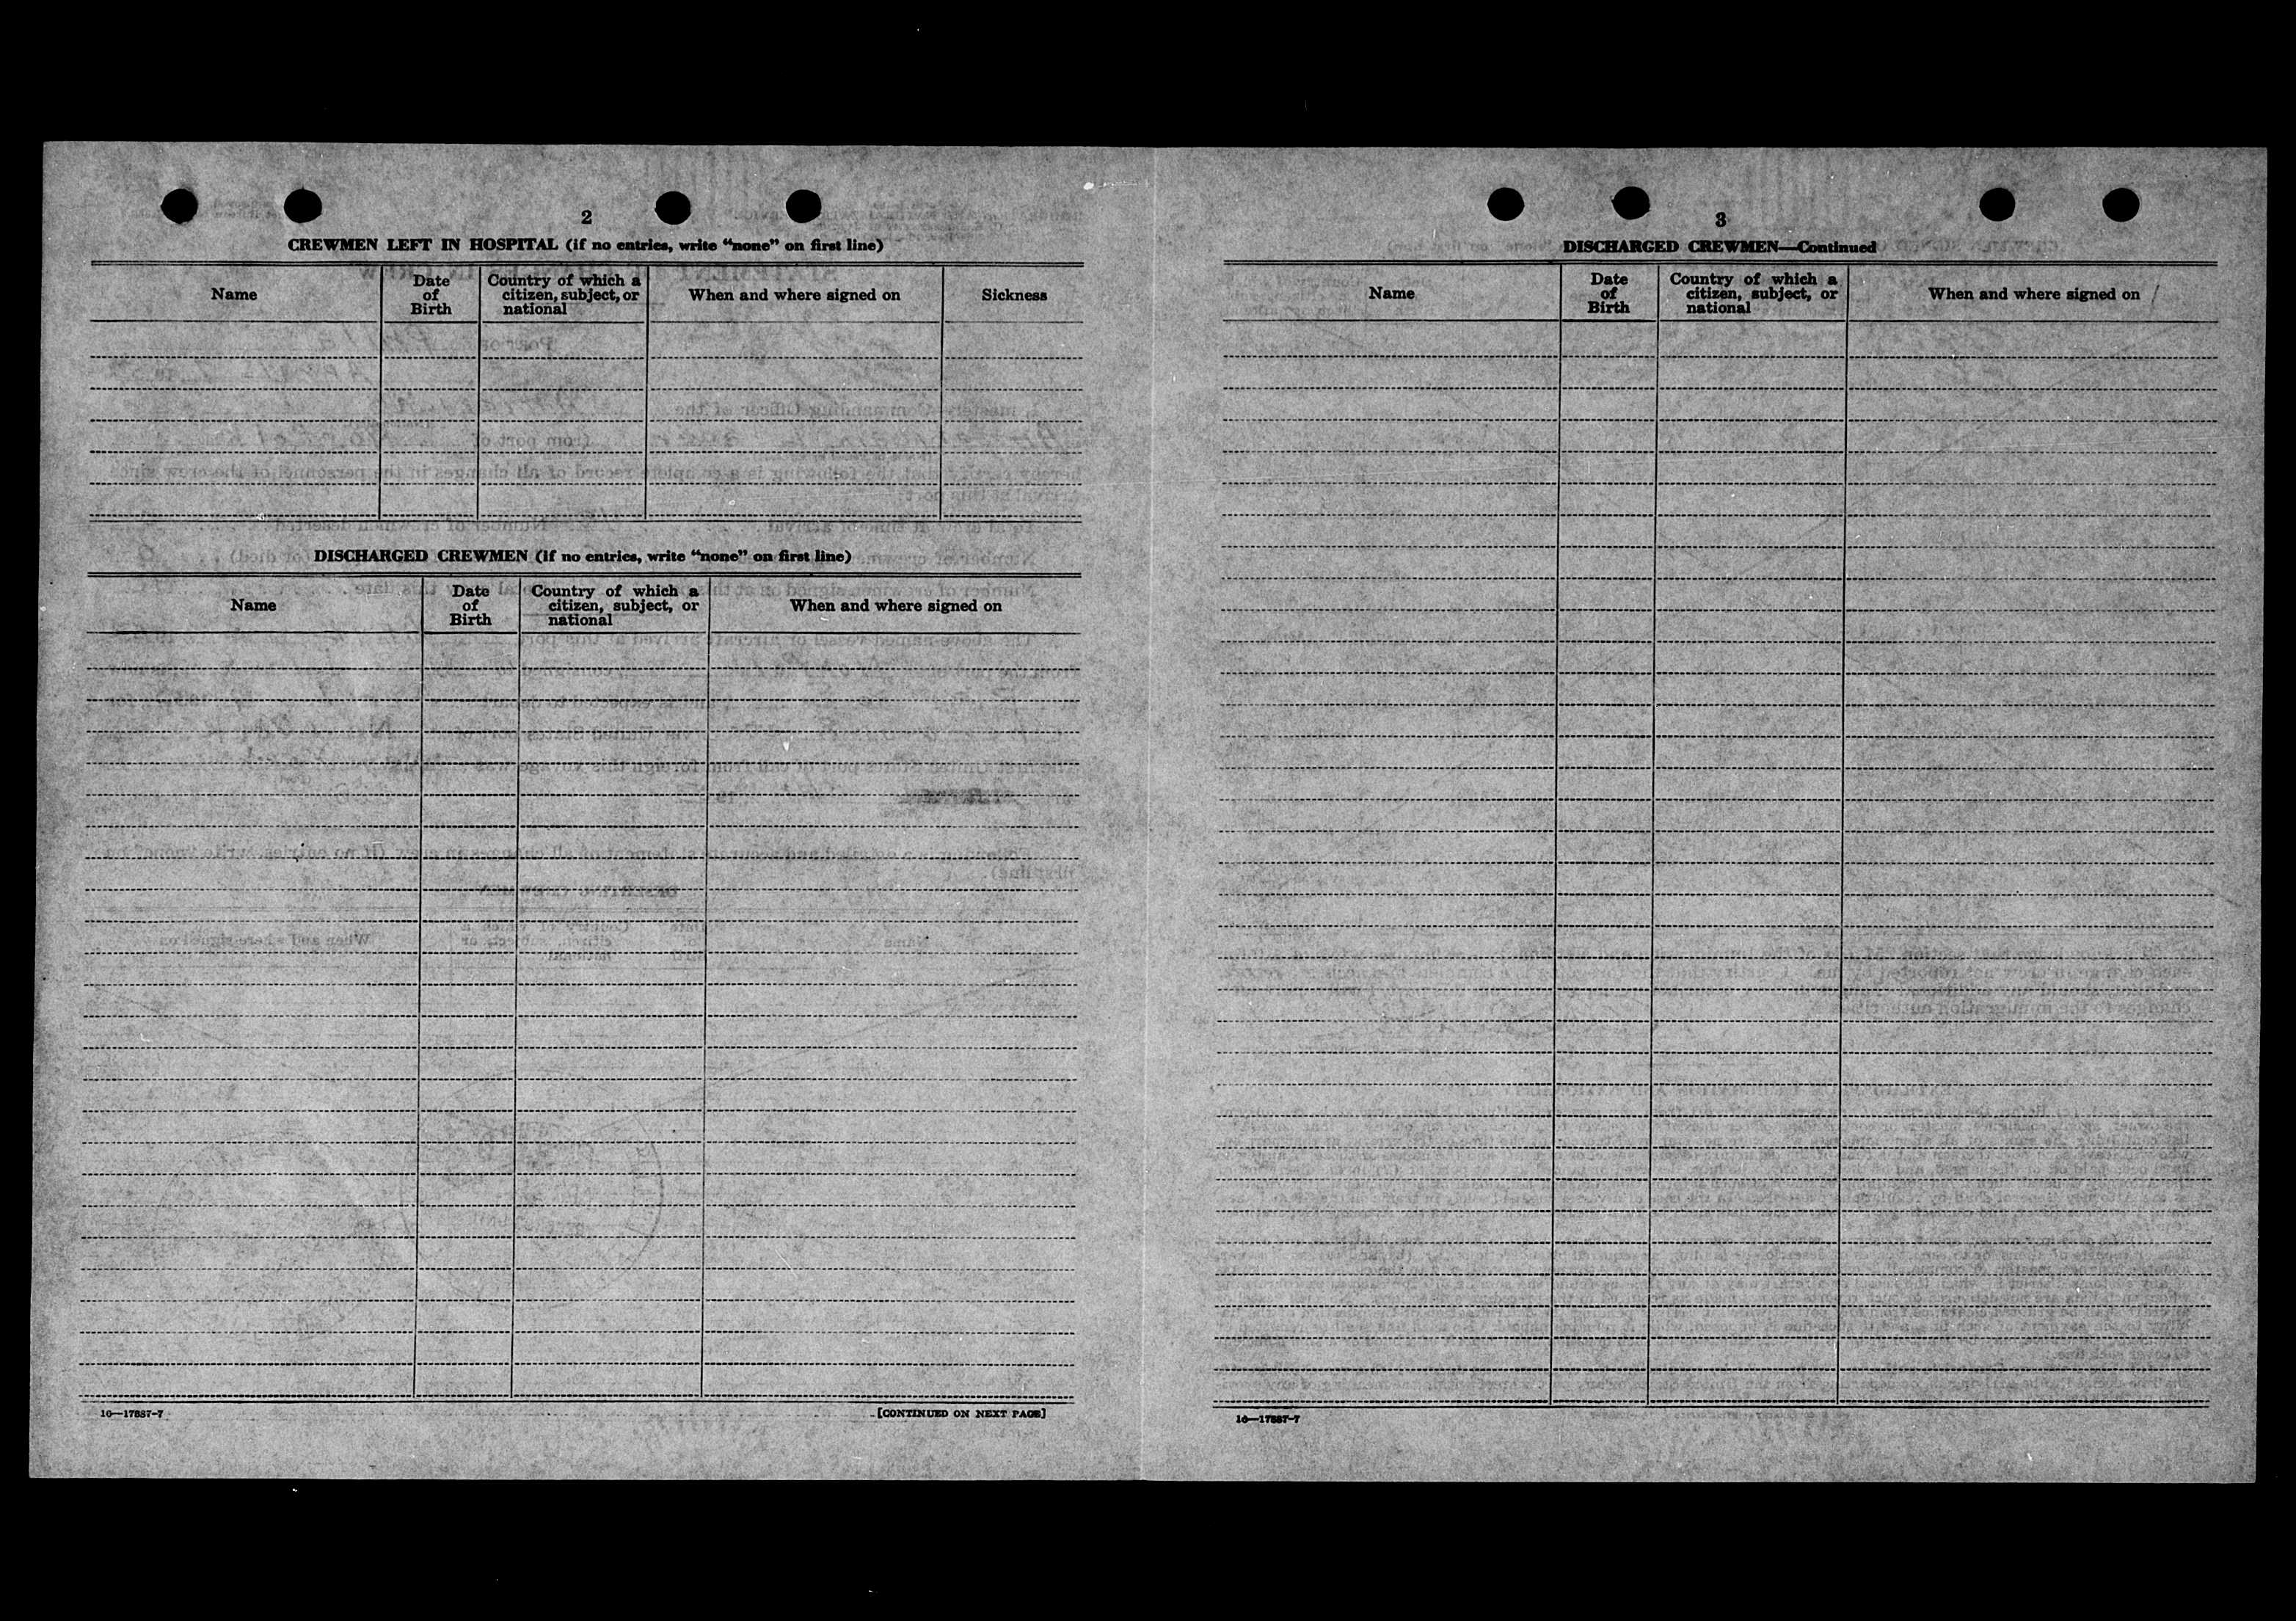 2
CREWMEN LEFT IN HOSPITAL (if no entries, write “none” on first line)
Name
Date
of
Birth
Country of which a
citizen, subject, or
national
When and where signed on
Sickness
DISCHARGED CREWMEN (if no entries, write “none” on first line)
Name
Date
of
Birth
Country of which a
citizen, subject, or
national
When and where signed on
16—17887-7
[CONTINUED ON NEXT PAGE]
3
DISCHARGED CREWMEN—Continued
Name
Date
of
Birth
Country of which a
citizen, subject, or
national
When and where signed on
16—17887-7